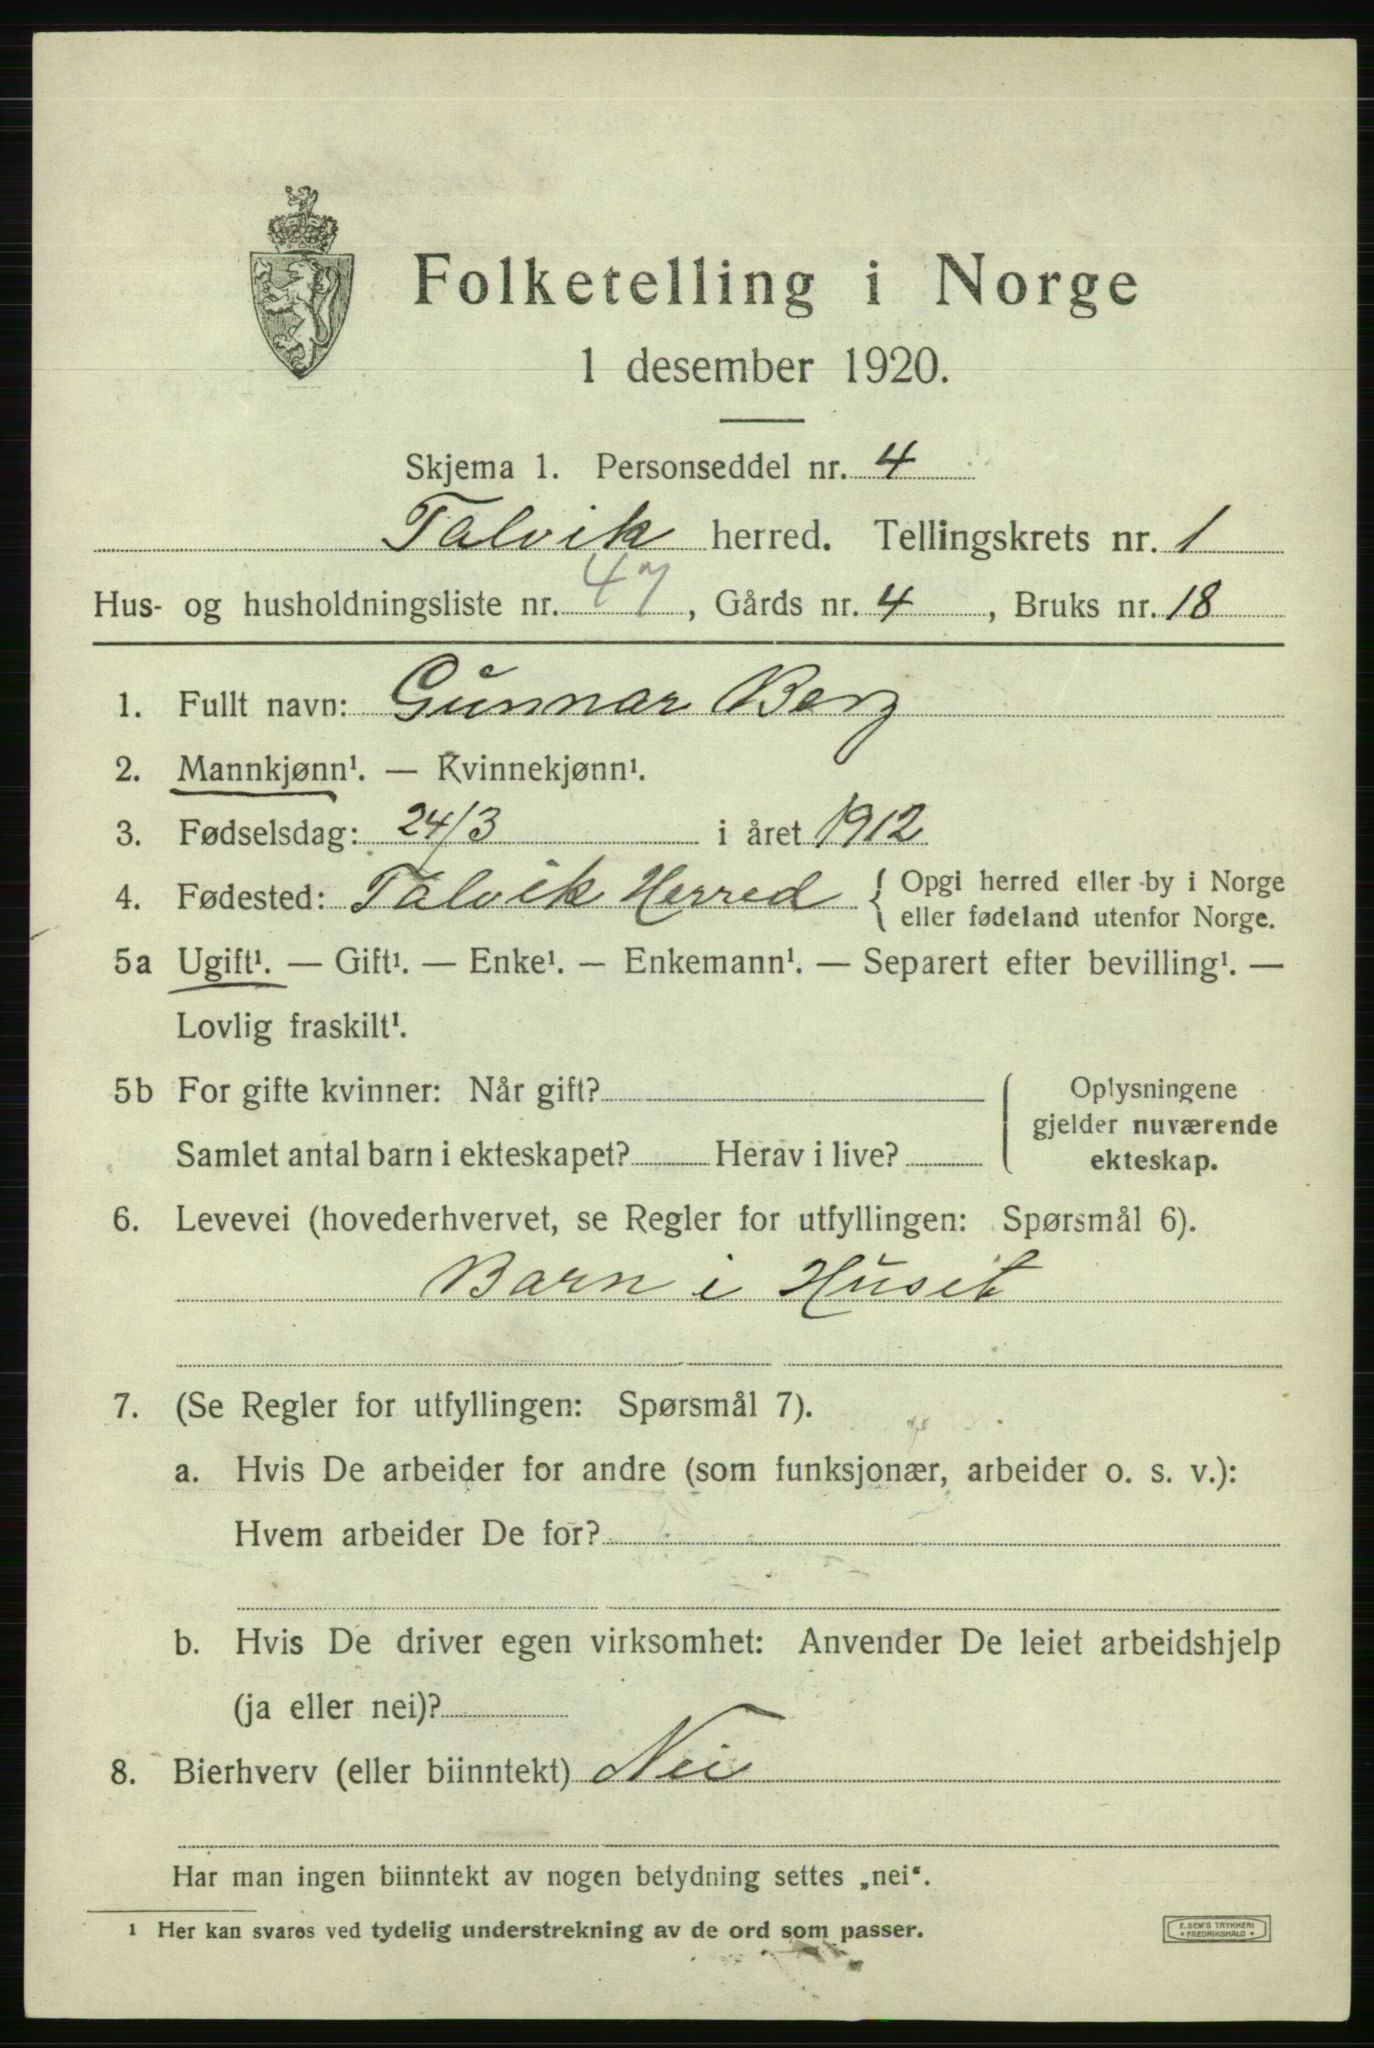 Folketelling i Norge
1 desember 1920.
Skjema 1. Personseddel nr. 4
Talvik herred. Tellingskrets nr. 1
Hus- og husholdningsliste nr. 47, Gårds nr. 4, Bruks nr. 18
1. Fullt navn: Gunnar Berg
2. Mannkjønn¹. — Kvinnekjønn¹.
3. Fødselsdag: 24/3 i året 1912
4. Fødested: Talvik Herred { Opgi herred eller by i Norge
eller fødeland utenfor Norge.
5a Ugift¹. — Gift¹. — Enke¹. — Enkemann¹. — Separert efter bevilling¹. —
Lovlig fraskilt¹.
5b For gifte kvinner: Når gift?
Samlet antal barn i ekteskapet? Herav i live?
Oplysningene
gjelder nuværende
ekteskap.
6. Levevei (hovederhvervet, se Regler for utfyllingen: Spørsmål 6).
Barn i Huset
7. (Se Regler for utfyllingen: Spørsmål 7).
a. Hvis De arbeider for andre (som funksjonær, arbeider o. s. v.):
Hvem arbeider De for?
b. Hvis De driver egen virksomhet: Anvender De leiet arbeidshjelp
(ja eller nei)?
8. Bierhverv (eller biinntekt) Nei
Har man ingen biinntekt av nogen betydning settes „nei“.
¹ Her kan svares ved tydelig understrekning av de ord som passer.
E. SEM'S TRYKKERI
• FREDRIKSHALD •